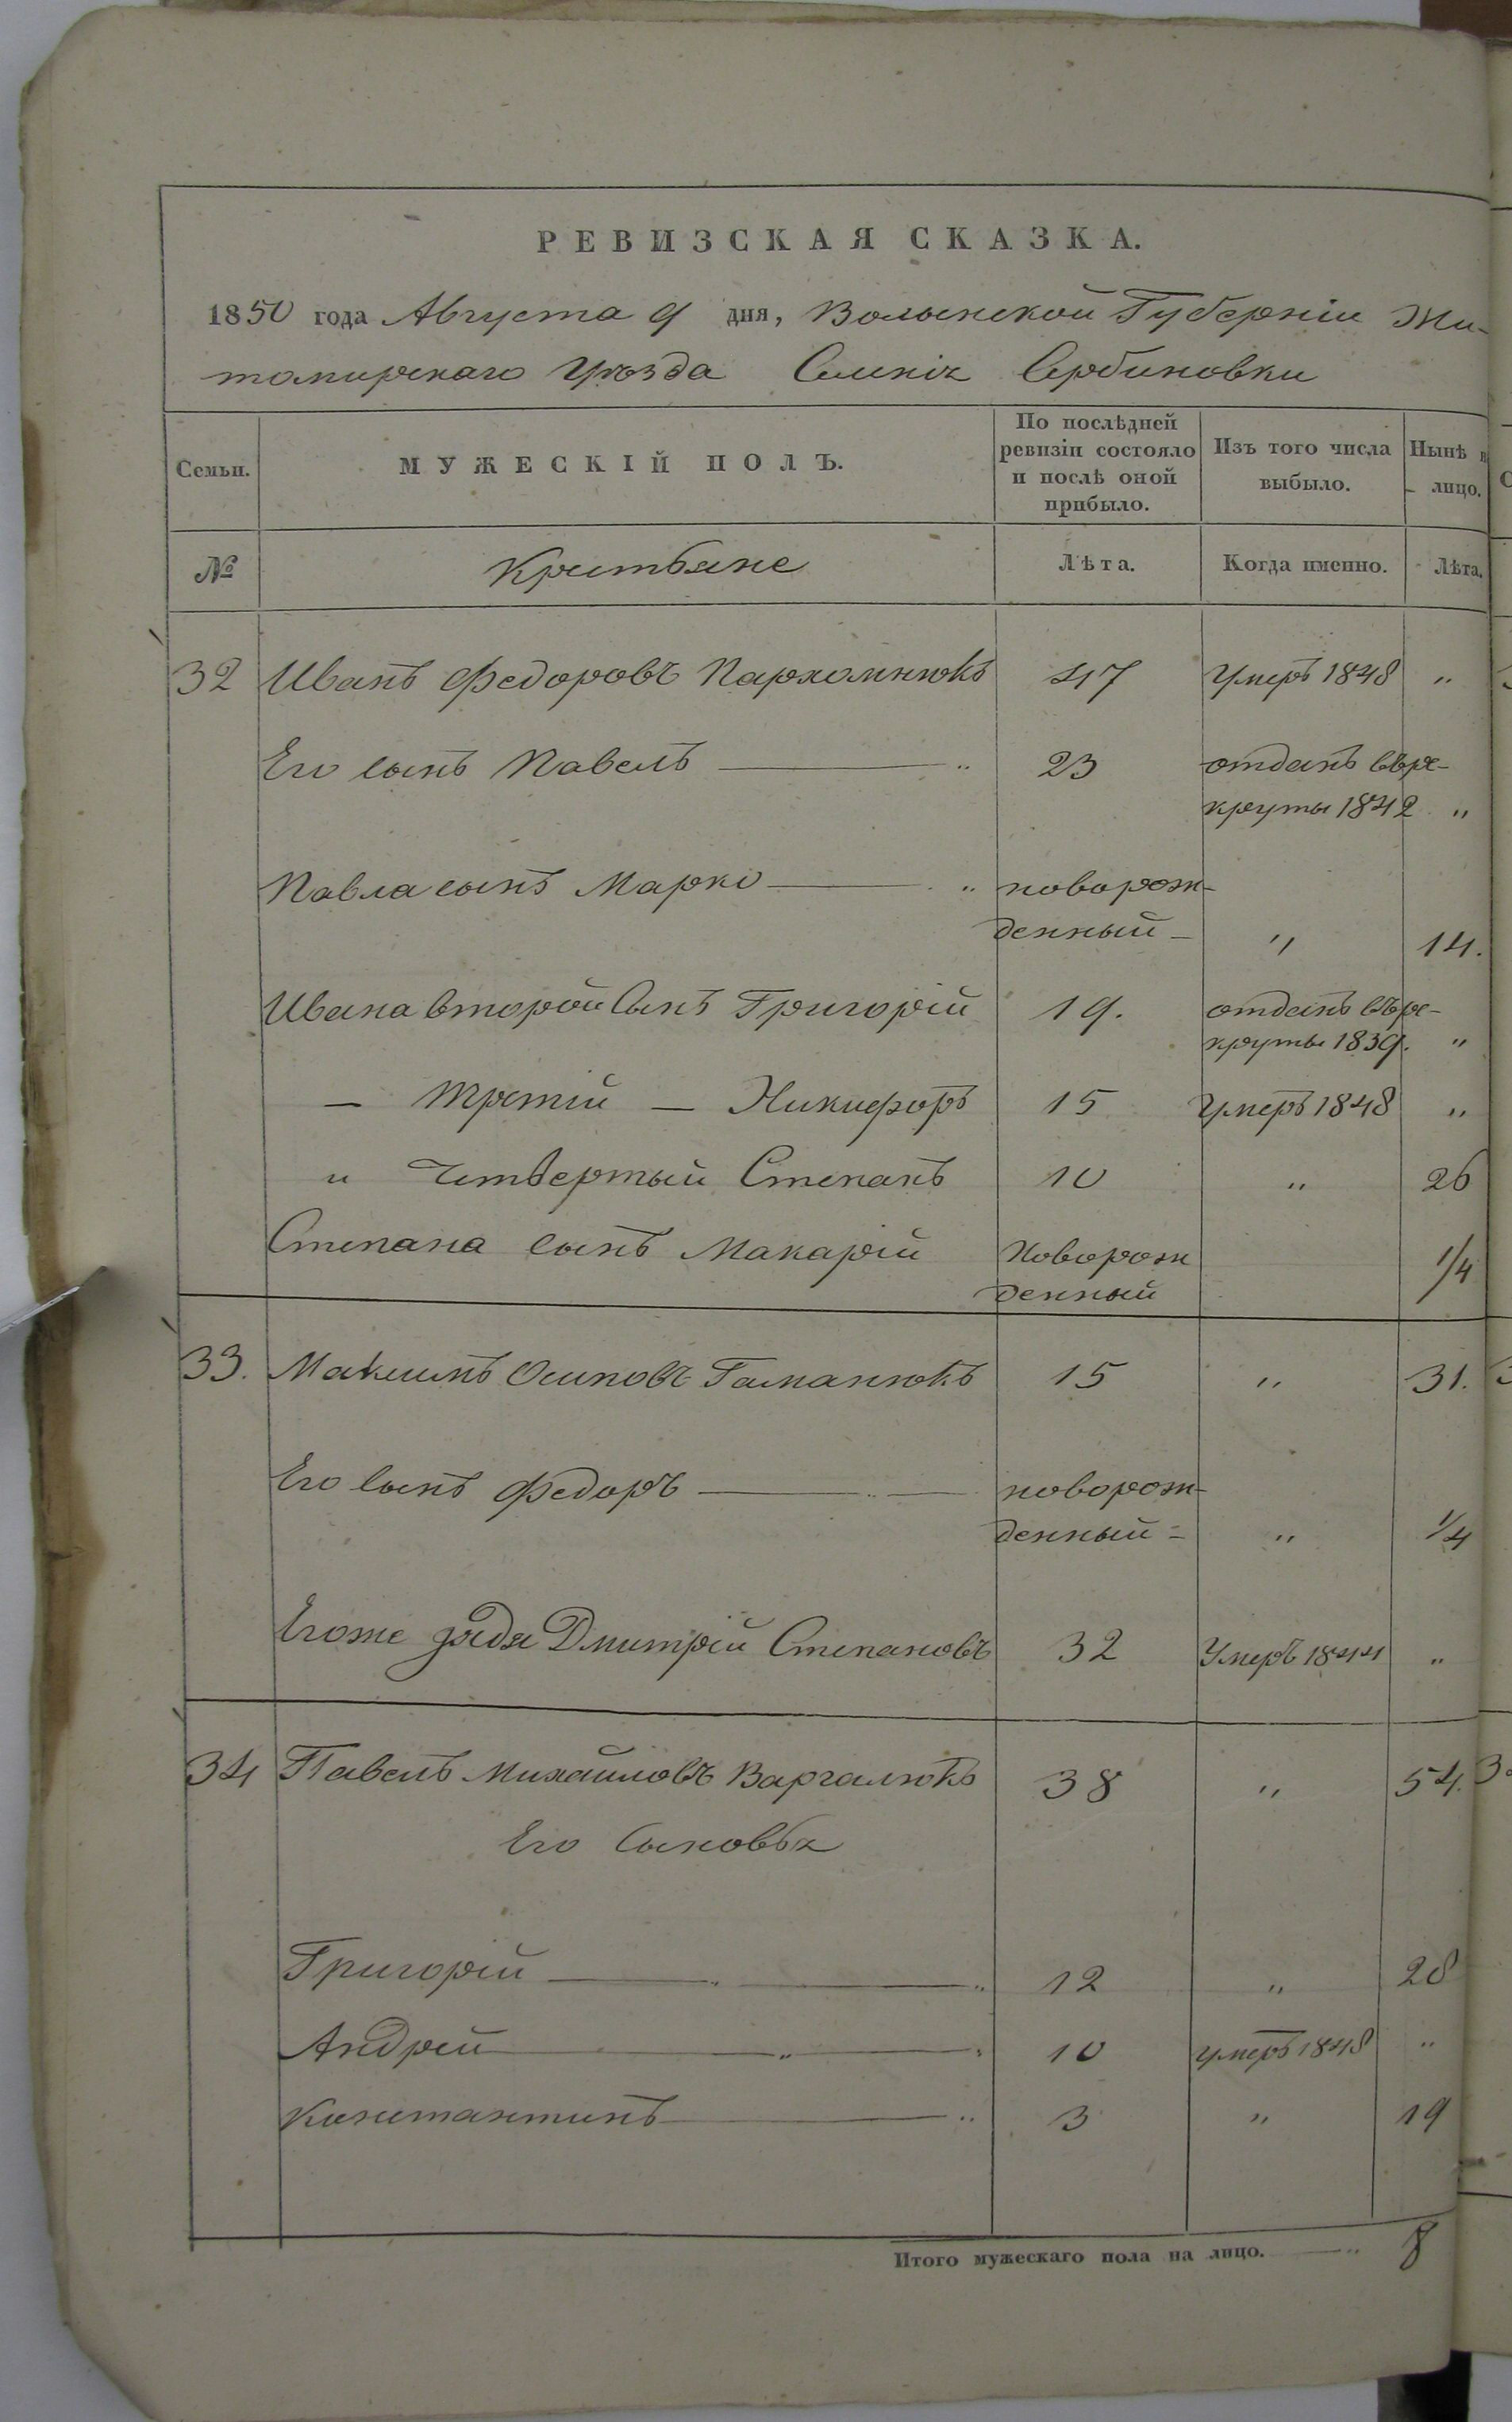 РЕВИЗСКАЯ СКАЗКА.
1850 года Августа 9 дня, Волынской Губерніи Жи-
томирскаго Уѣзда Сербиновки
Семьи. МУЖЕСКІЙ ПОЛЪ. По послѣдней ревизіи состояло и послѣ оной прибыло. Изъ того числа выбыло. Нынѣ на лицо.
№ Крестьяне Лѣта. Когда именно. Лѣта.
32 Иванъ Федоровъ Пархомнюкъ 47 Умеръ 1848 "
Его сынъ Павелъ — " 23 отданъ въ ре-
круты 1842 "
Павла сынъ Марко — " новорож-
денный — " 14.
Ивана второй Сынъ Григорій 19. отданъ въ ре-
круты 1839. "
— третій — Никифоръ 15 Умеръ 1848 "
" Четвертый Степанъ 10 " 26
Степана сынъ Макарій Новорож
денный 1/4
33. Максимъ Осиповъ Гаманюкъ 15 " 31.
Его сынъ Федоръ — " — новорож-
денный — " 1/4
Егоже дядя Дмитрій Степановъ 32 Умеръ 1844 "
34 Павелъ Михайловъ Варгалюкъ 38 " 54.
Его Сыновья
Григорій — " — " 12 " 28
Андрей — " — " 10 умеръ 1848 "
Константинъ — " 3 " 19
Итого мужескаго пола на лицо. — " 8